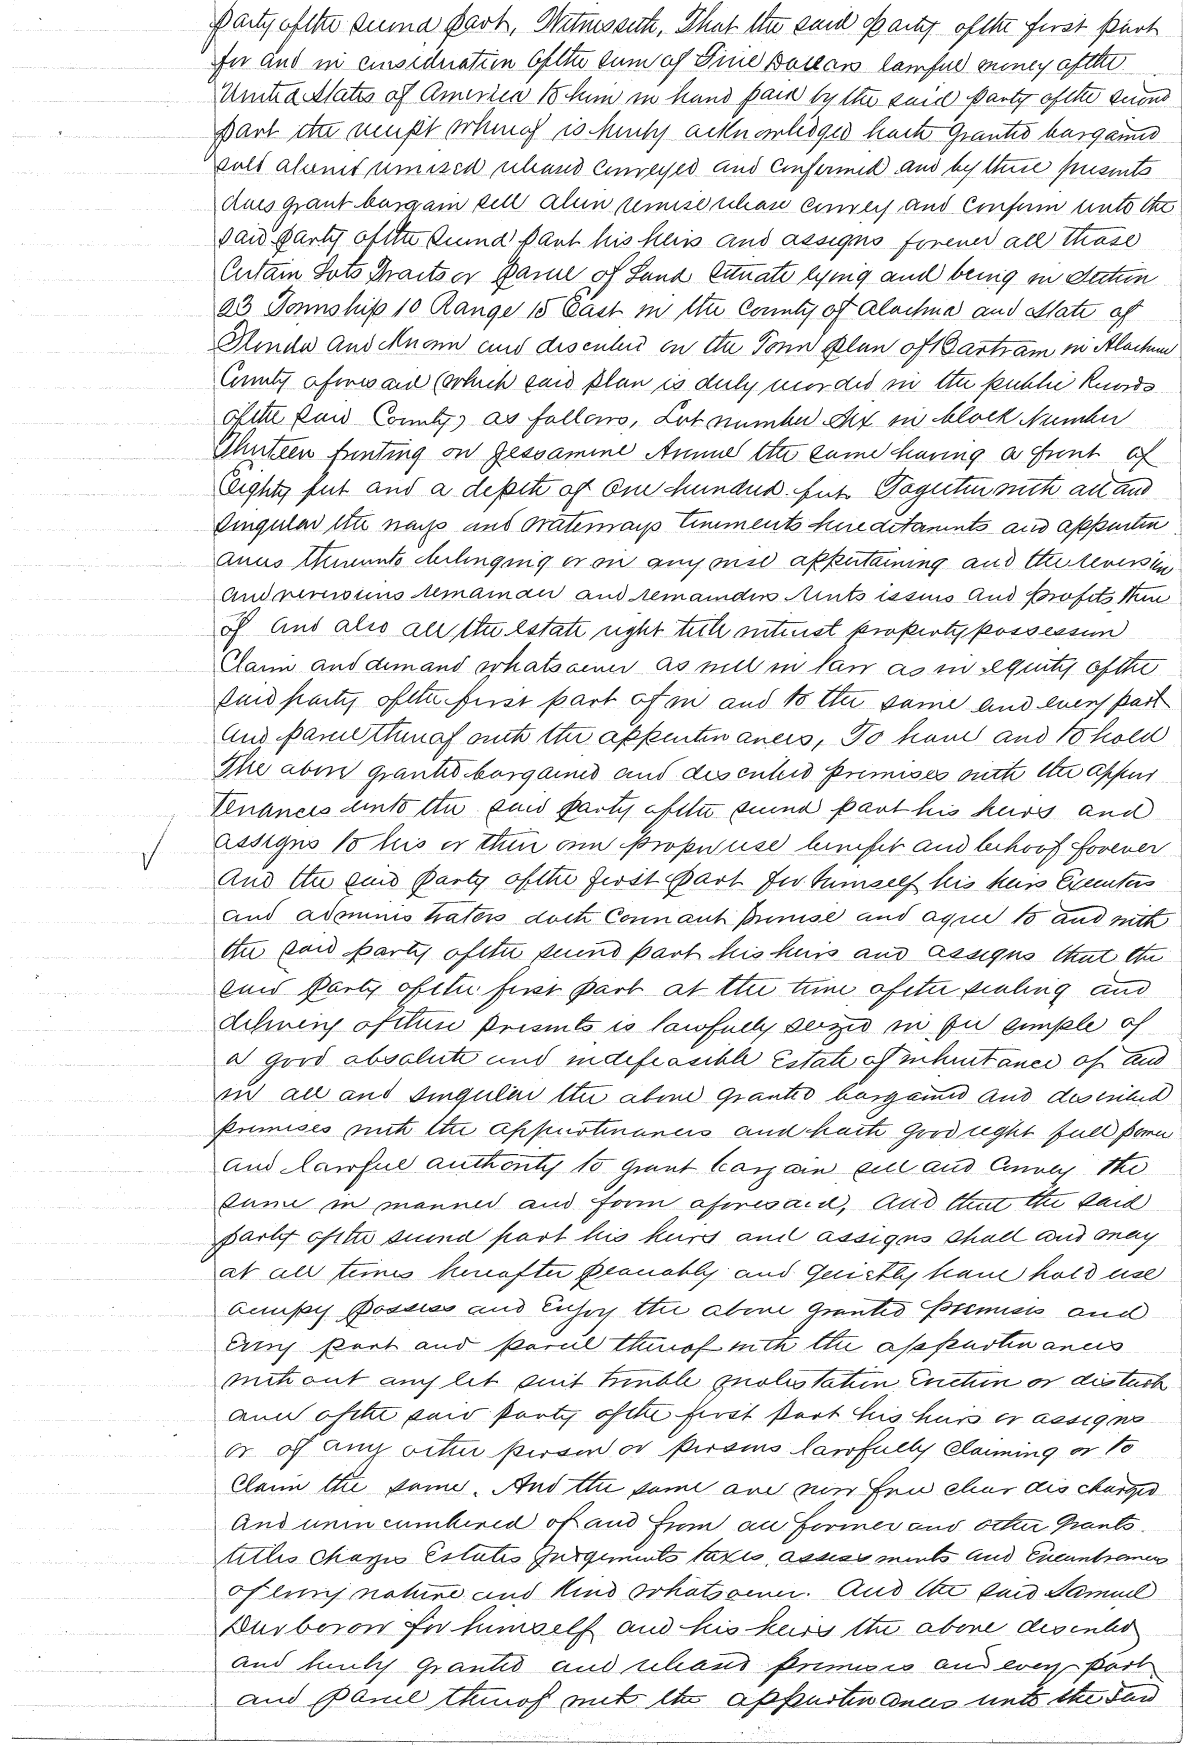 party of the second part, Witnesseth, That the said party of the first part
for and in consideration of the sum of Five Dollars lawful money of the
United States of America to him in hand paid by the said party of the second
part the receipt whereof is hereby acknowledged hath granted bargained
sold aliened remised released conveyed and confirmed and by these presents
does grant bargain sell alien remise release convey and confirm unto the
said party of the second part his heirs and assigns forever all those
Certain Lots Tracts or parcel of Land Situate lying and being in Section
23 Township 10 Range 18 East in the County of Alachua and State of
Florida and Known and described on the Town plan of Bartram in Alachua
County aforesaid (which said plan is duly recorded in the public Records
of the said County) as follows, Lot number Six in block Number
Thirteen fronting on Jessamine Avenue the same having a front of
Eighty feet and a depth of One hundred feet. Together with all and
singular the ways and waterways tenements hereditaments and appurten
ances thereunto belonging or in any wise appertaining and the reversion
and reversions remainder and remainders rents issues and profits there
of and also all the estate right title interest property possession
Claim and demand whatsoever as well in law as in equity of the
said party of the first part of in and to the same and every part
and parcel thereof with the appurtenances, To have and to hold
The above granted bargained and described premises with the appur
tenances unto the said party of the second part his heirs and
assigns to his or their own proper use benefit and behoof forever
And the said party of the first part for himself his heirs Executors
and administrators doth Covenant promise and agree to and with
the said party of the second part his heirs and assigns that the
said party of the first part at the time of the sealing and
delivery of these presents is lawfully seized in fee simple of
a good absolute and indefeasible Estate of inheritance of and
in all and singular the above granted bargained and described
premises with the appurtenances and hath good right full power
and lawful authority to grant bargain sell and Convey the
same in manner and form aforesaid, And that the said
party of the second part his heirs and assigns shall and may
at all times hereafter peaceably and Quietly have hold use
occupy possess and Enjoy the above granted premises and
Every part and parcel thereof with the appurtenances
without any let suit trouble molestation Eviction or disturb
ance of the said party of the first part his heirs or assigns
or of any other person or persons lawfully claiming or to
Claim the same. And the same are now free clear discharged
And unincumbered of and from all former and other Grants
titles charges Estates Judgements taxes, assessments and Encumbrances
of every nature and Kind whatsoever. And the said Samuel
Durborow for himself and his heirs the above described
and hereby granted and released premises and every part
and parcel thereof with the appurtenances unto the said